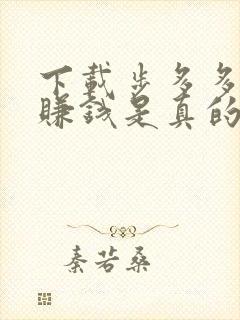 下载步多多
赚钱是真的
秦若桑